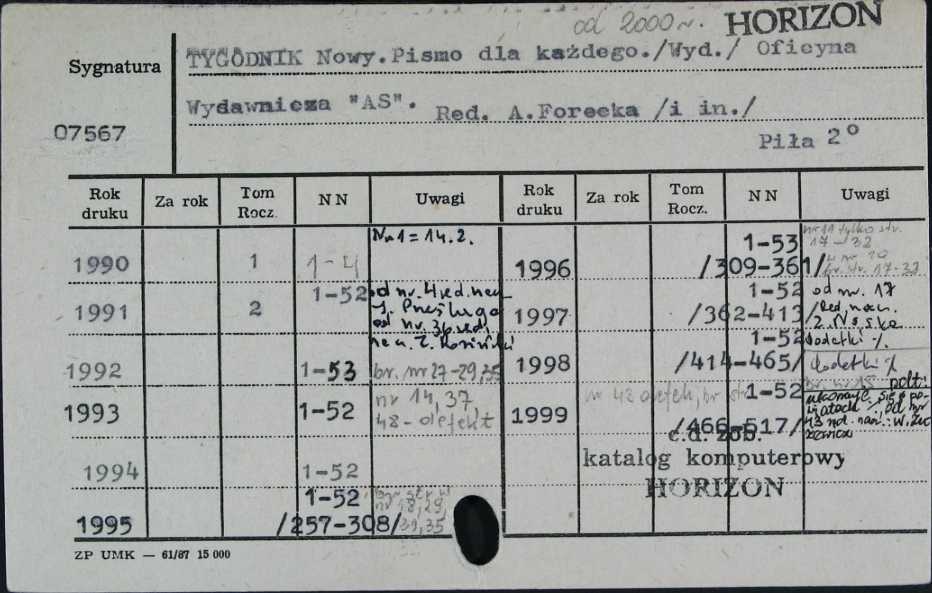 od 2000 r. HORIZON
Sygnatura
TYGODNIK Nowy. Pismo dla każdego. /Wyd./ Oficyna
Wydawnicza "AS". Red. A. Forecka /i in./
07567
Piła 2°
Rok druku Za rok Tom Rocz. NN Uwagi Rok druku Za rok Tom Rocz. NN Uwagi
1990 1 1-4 Nr 1 = 14.2.
1991 2 1-52 od nr. 4 red. nacz.
od nr. 36 red.
1992 1-53 br. nr 27-29, 35
1993 1-52 nr 14, 37
48 - defekt
1994 1-52
1995 1-52
/257-308/
1996 1-53 nr 11 tylko str.
17-32
/309-361/
1997 1-52 od nr. 17
/362-413/ Red. nacz.
1998 1-52 dodatki
/414-465/ dodatki
1999 nr 48 defek, br 1-52 br. nr 18
/466-517/
c.d. zob.
katalog komputerowy
HORIZON
ZP UMK — 61/87 15 000